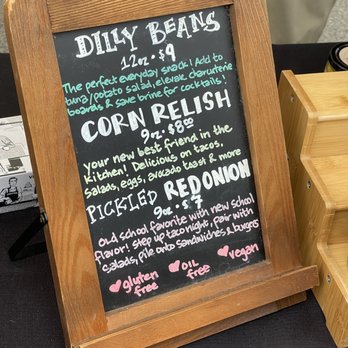 DILLY BEANS
12oz • $9
The perfect everyday snack! Add to
tuna/potato salad, elevate charcuterie
boards & save brine for cocktails!
CORN RELISH
9oz • $8.00
your new best friend in the
kitchen! Delicious on tacos,
salads, eggs, avocado toast & more
PICKLED RED ONION
9oz • $7
Old school favorite with new school
flavor! Step up taco night, pair with
salads, pile onto sandwiches & burgers
gluten free
oil free
vegan